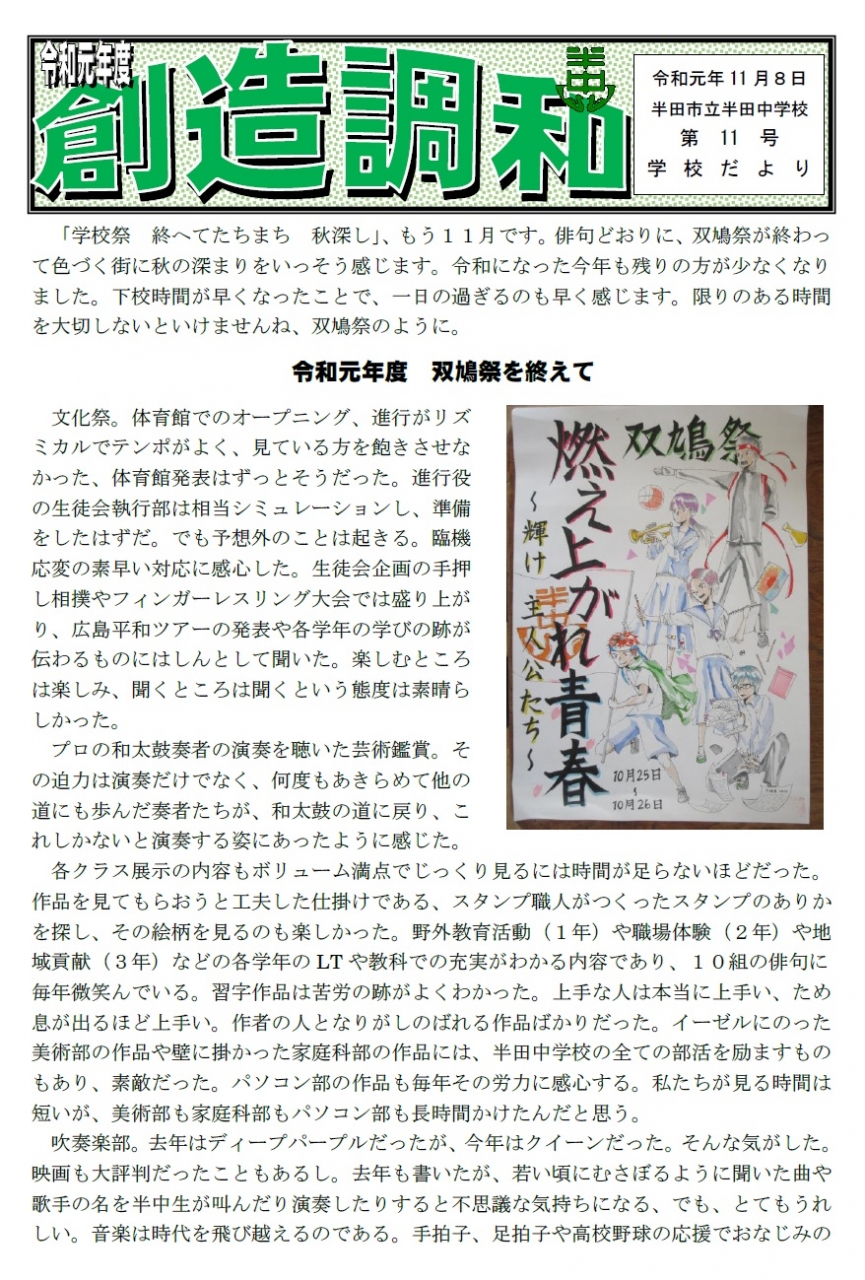 令和元年度
創造調和
半田
令和元年11月8日
半田市立半田中学校
第 11 号
学校だより
「学校祭　終へてたちまち　秋深し」、もう１１月です。俳句どおりに、双鳩祭が終わっ
て色づく街に秋の深まりをいっそう感じます。令和になった今年も残りの方が少なくなり
ました。下校時間が早くなったことで、一日の過ぎるのも早く感じます。限りのある時間
を大切しないといけませんね、双鳩祭のように。
令和元年度　双鳩祭を終えて
文化祭。体育館でのオープニング、進行がリズ
ミカルでテンポがよく、見ている方を飽きさせな
かった、体育館発表はずっとそうだった。進行役
の生徒会執行部は相当シミュレーションし、準備
をしたはずだ。でも予想外のことは起きる。臨機
応変の素早い対応に感心した。生徒会企画の手押
し相撲やフィンガーレスリング大会では盛り上が
り、広島平和ツアーの発表や各学年の学びの跡が
伝わるものにはしんとして聞いた。楽しむところ
は楽しみ、聞くところは聞くという態度は素晴ら
しかった。
プロの和太鼓奏者の演奏を聴いた芸術鑑賞。そ
の迫力は演奏だけでなく、何度もあきらめて他の
道にも歩んだ奏者たちが、和太鼓の道に戻り、こ
れしかないと演奏する姿にあったように感じた。
双鳩祭
燃え上がれ青春
～輝け 主人公たち～
10月25日
～
10月26日
各クラス展示の内容もボリューム満点でじっくり見るには時間が足らないほどだった。
作品を見てもらおうと工夫した仕掛けである、スタンプ職人がつくったスタンプのありか
を探し、その絵柄を見るのも楽しかった。野外教育活動（１年）や職場体験（２年）や地
域貢献（３年）などの各学年の LT や教科での充実がわかる内容であり、１０組の俳句に
毎年微笑んでいる。習字作品は苦労の跡がよくわかった。上手な人は本当に上手い、ため
息が出るほど上手い。作者の人となりがしのばれる作品ばかりだった。イーゼルにのった
美術部の作品や壁に掛かった家庭科部の作品には、半田中学校の全ての部活を励ますもの
もあり、素敵だった。パソコン部の作品も毎年その労力に感心する。私たちが見る時間は
短いが、美術部も家庭科部もパソコン部も長時間かけたんだと思う。
吹奏楽部。去年はディープパープルだったが、今年はクイーンだった。そんな気がした。
映画も大評判だったこともあるし。去年も書いたが、若い頃にむさぼるように聞いた曲や
歌手の名を半中生が叫んだり演奏したりすると不思議な気持ちになる、でも、とてもうれ
しい。音楽は時代を飛び越えるのである。手拍子、足拍子や高校野球の応援でおなじみの